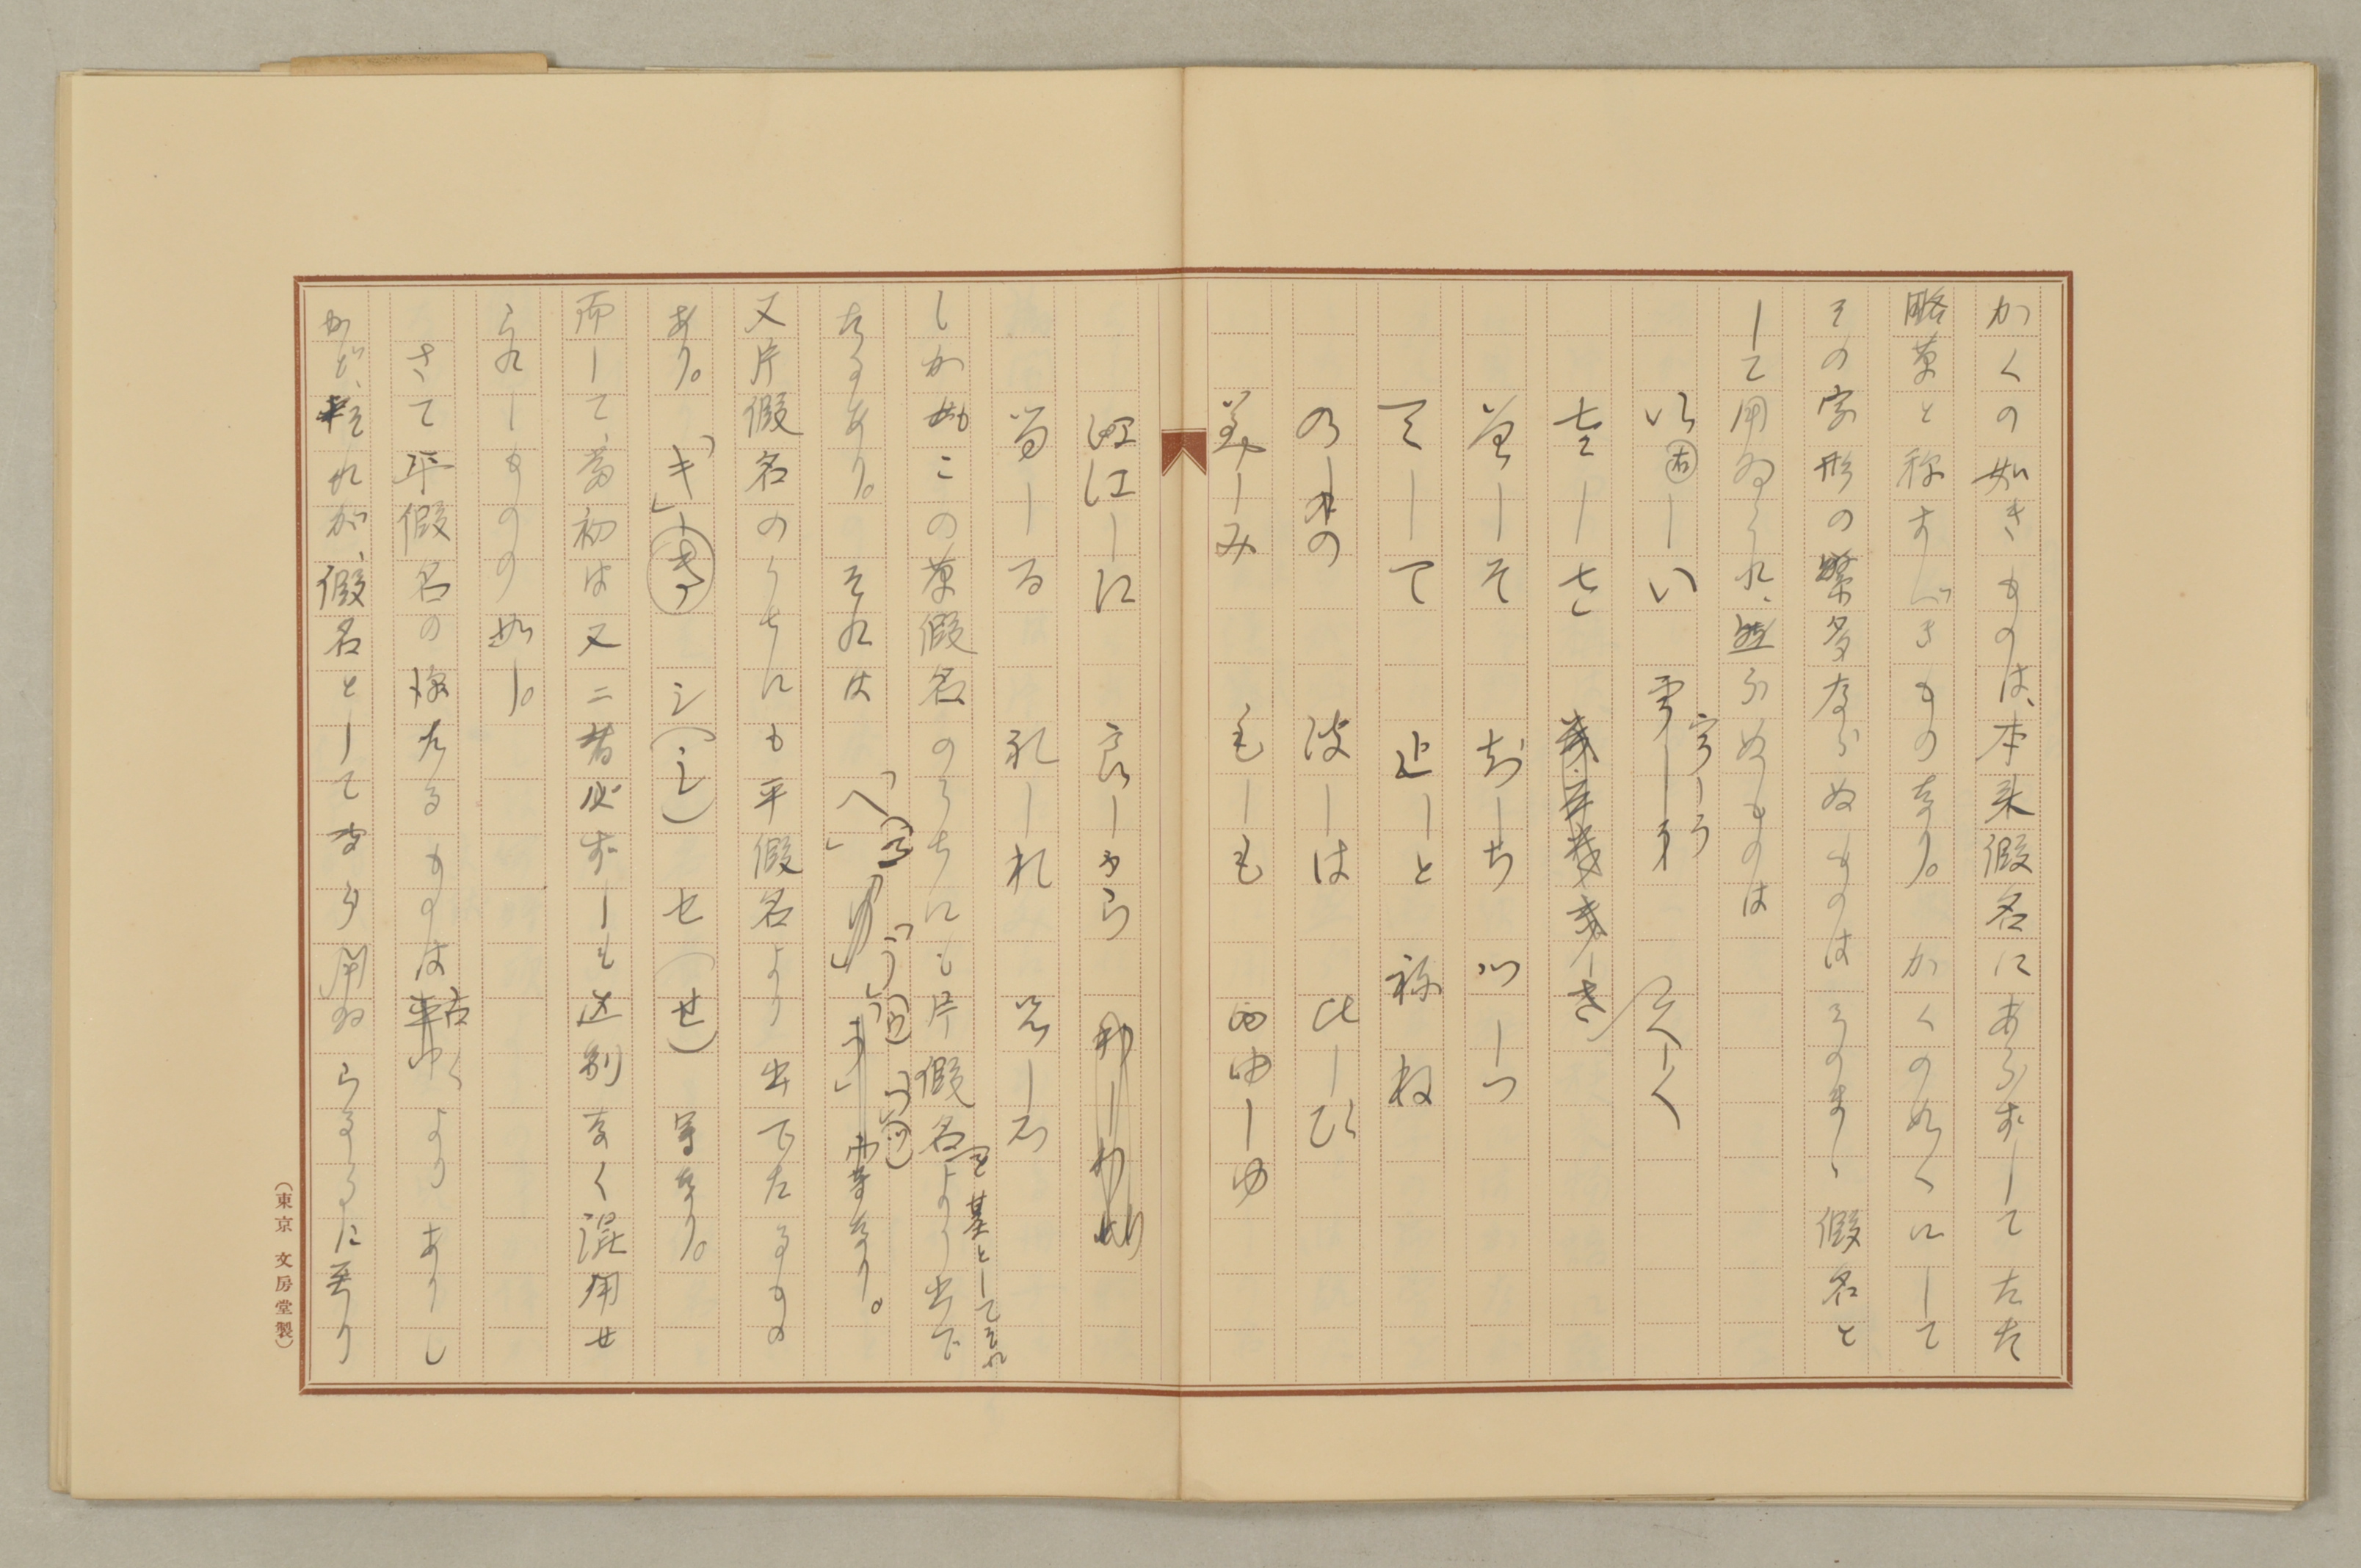 かくの如きものは、本来假名にあらずしてたた
略草と称すべきものなり。かくの如くにして
その字形の繁多ならぬものはそのまゝ假名と
して用ゐられ、然らぬものは
以―い 宇―う 久―く
左―さ
曽―そ 知―ち 川―つ
天―て 止―と 祢―ね
乃―の 波―は 比―ひ
美―み 毛―も 由―ゆ
仁―に 良―ら
留―る 礼―れ 呂―ろ
しかもこの草假名のうちにも片假名より出で
を基としてそれ
たるあり。それは「へ」等なり。
又片假名のうちにも平假名より出でたるもの
あり。「キ」 シ(し) セ(せ) 等なり。
而して、当初は又二者必ずしも区別なく混用せ
られしものゝ如し。
さて平假名の様なるものは古くよりありし
かど、それが、假名として専ら用ゐらるゝに至り
(東京 文房堂製)